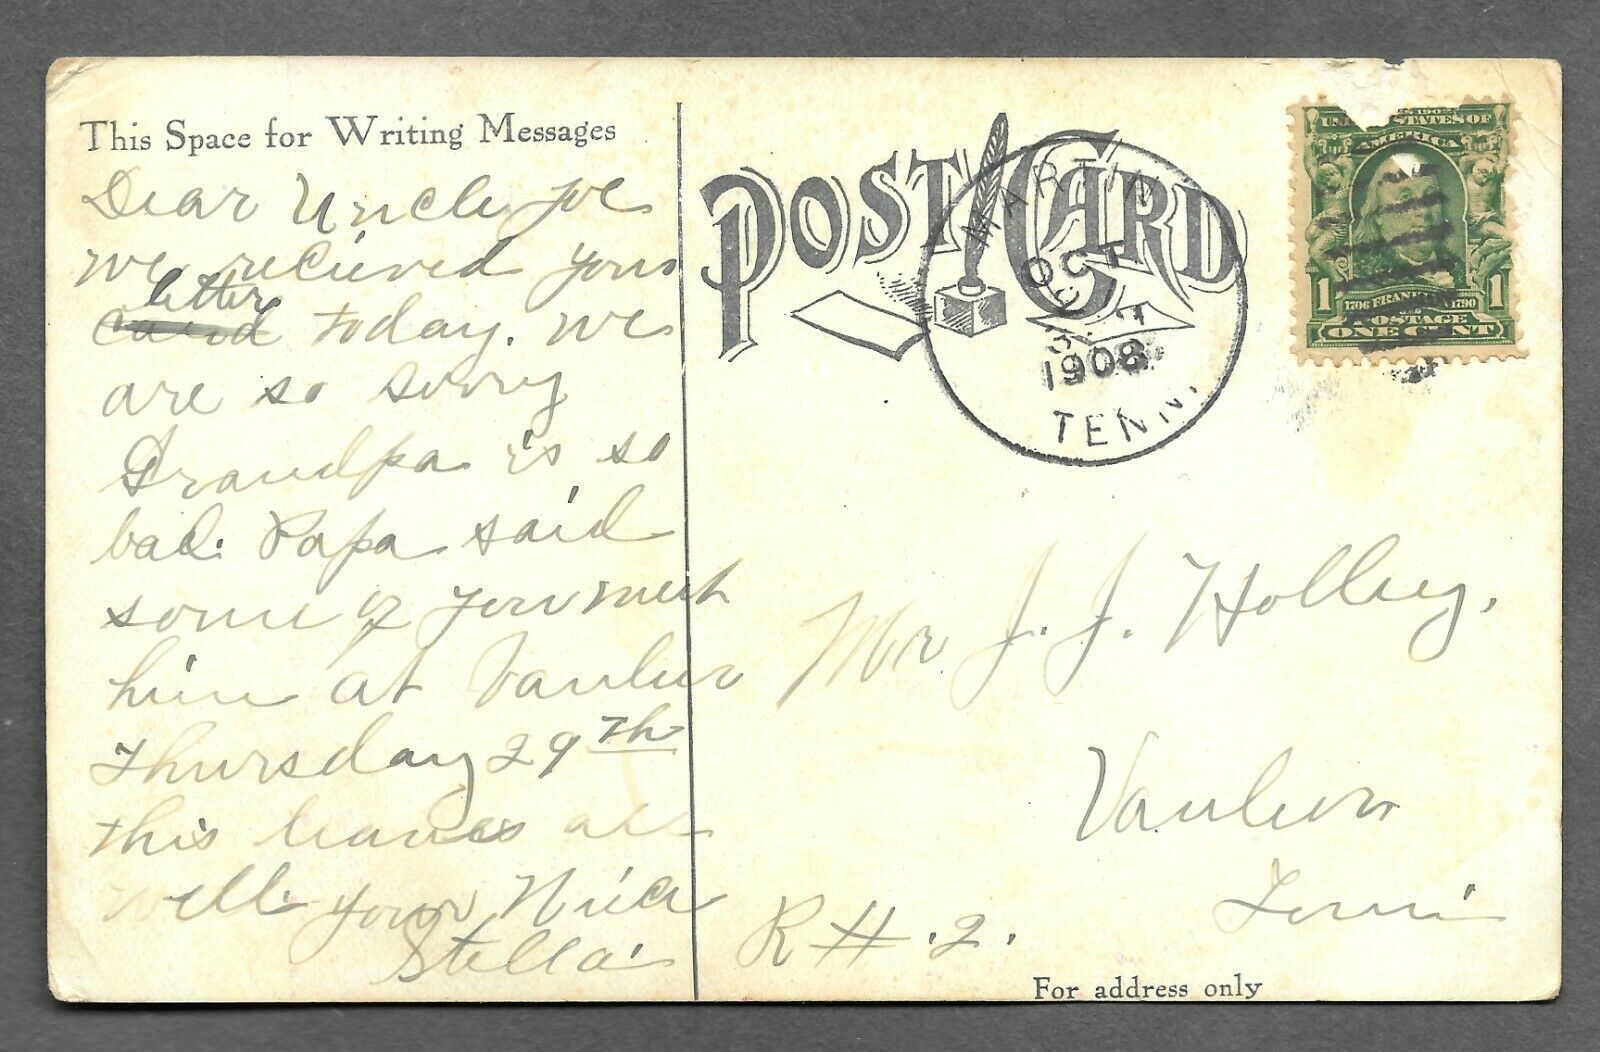 This Space for Writing Messages
Dear Uncle Joe
we recieved your
letter
card today. we
are so sorry
Grandpa is so
bad. Papa said
some of you meet
him at Vanleer
Thursday 29th
this leaves all
well. your Niece
Stella.
POST CARD
MARTIN
OCT
1908
TENN.
UNITED STATES OF
AMERICA
1706 FRANKLIN 1790
1 1
POSTAGE
ONE CENT
Mr J. J. Holley.
Vanleer
Tenn
R #.2.
For address only